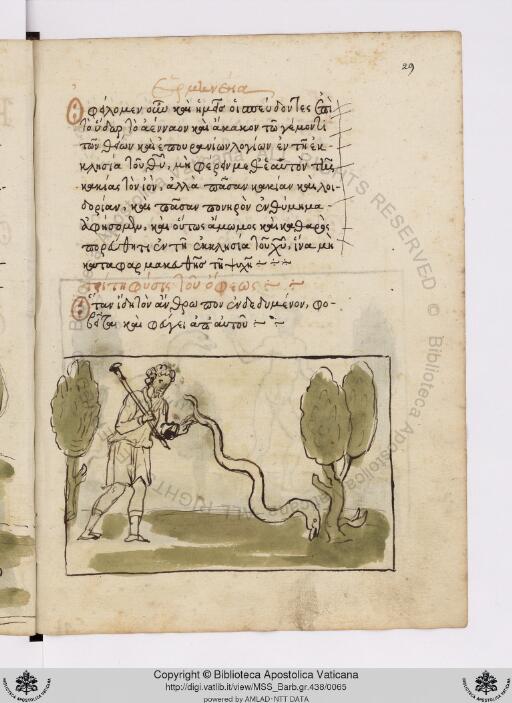 29
Ἑρμηνεία
Ὀφείλομεν οὖν καὶ ἡμεῖς οἱ σπεύδοντες ἐπὶ
τὸ ὕδωρ τὸ ἀένναον καὶ ἄκακον τῶ γέμοντι
τῶν θείων καὶ ἐπουρανίων λογίων ἐν τῆ ἐκ-
κλησία τοῦ θῦ, μὴ φέρειν μεθ' ἑαυτὸν τῆς
κακίας τὸν ἰὸν, ἀλλὰ πᾶσαν κακίαν καὶ λοι-
δορίαν, καὶ πᾶσαν πονηρὸν ἐνθύμημα
ἀφήσομεν, καὶ οὕτως ἄμωμος καὶ καθαρὸς
πορευθῆτι ἐν τῆ ἐκκλησία τοῦ χῦ, ἵνα μὴ
καταφαρμακωθῆς τῆ ψυχῆ
τρίτη φύσις τοῦ ὄφεως
Ὅταν ἴδη τὸν ἄνθρωπον ἐνδεδυμένον, φο-
βεῖται καὶ φεύγει ἀπ' αὐτοῦ
Copyright © Biblioteca Apostolica Vaticana
http://digi.vatlib.it/view/MSS_Barb.gr.438/0065
powered by AMLAD-NTT DATA